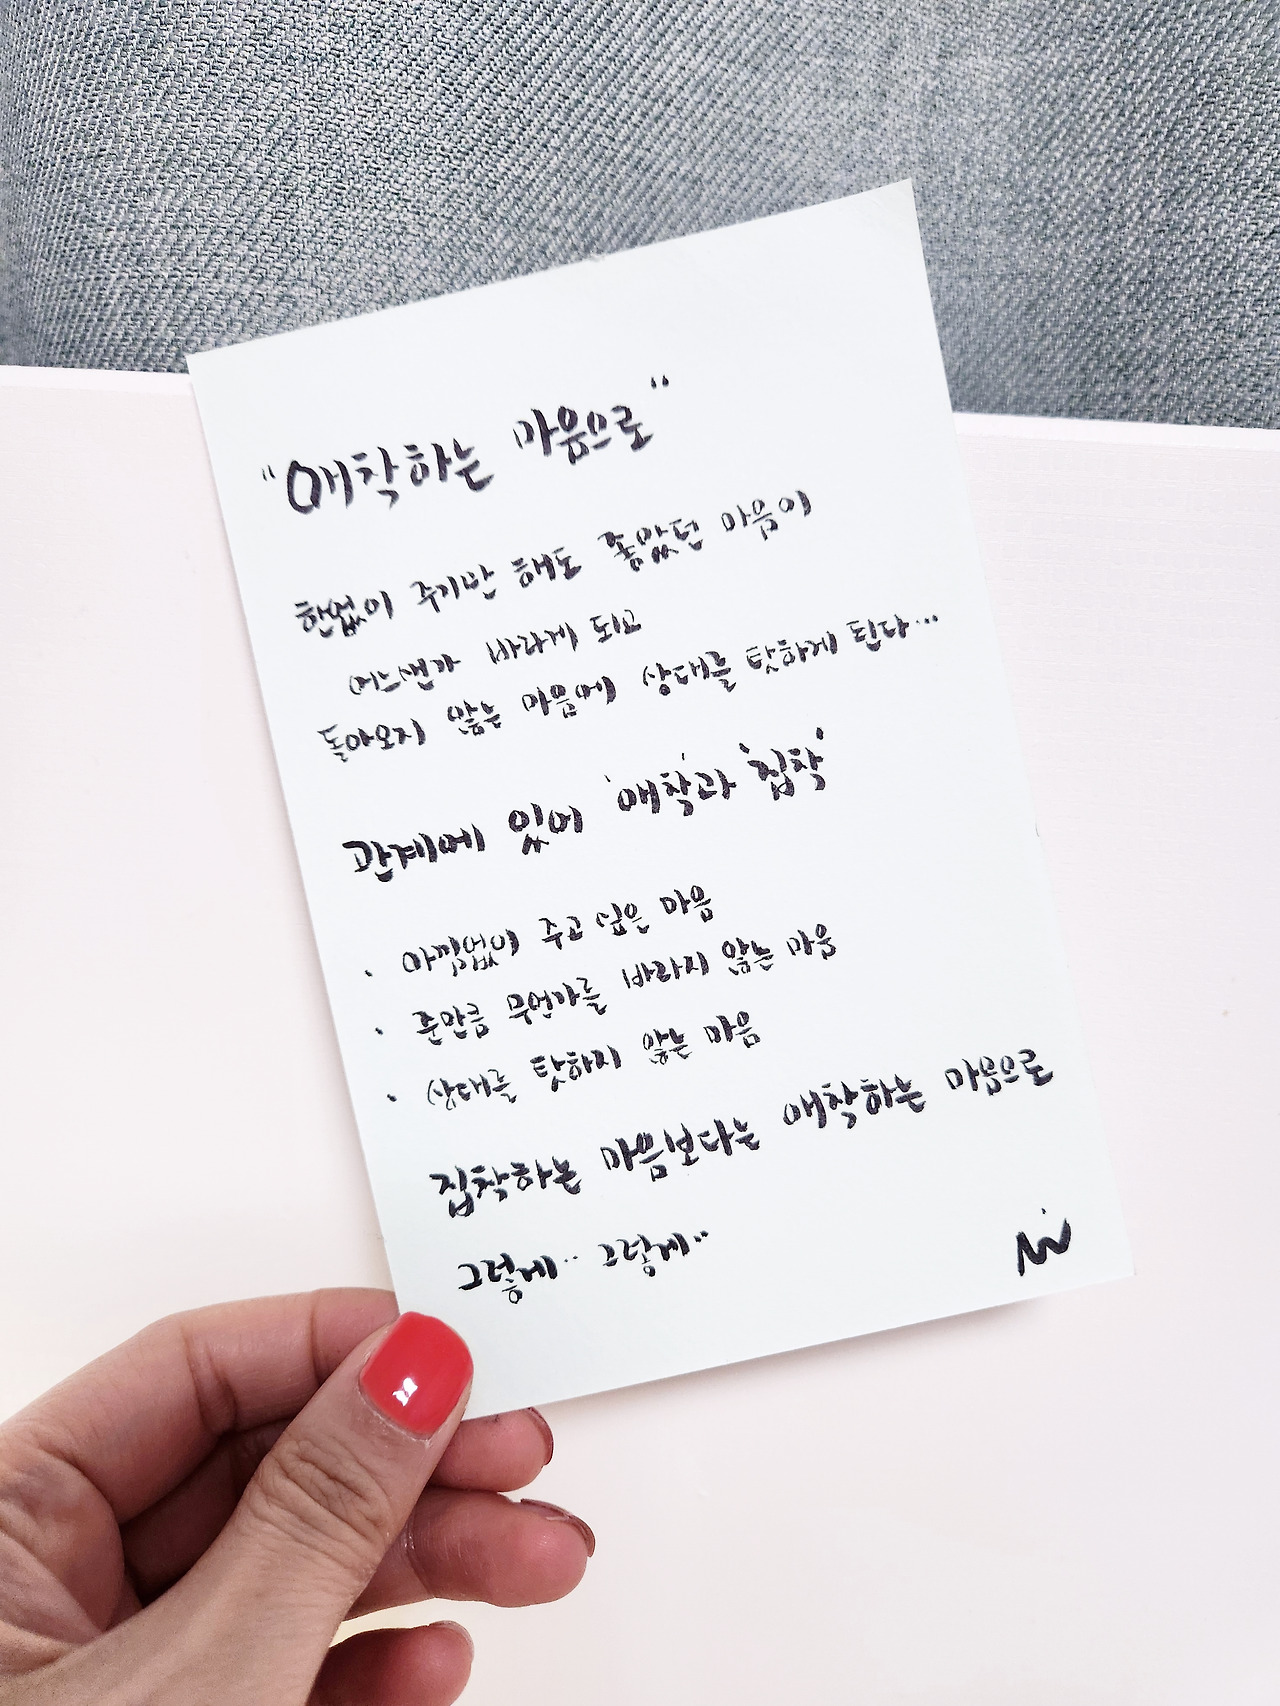 "애착하는 마음으로"
한없이 주기만 해도 좋았던 마음이
어느샌가 바라게 되고
돌아오지 않는 마음에 상대를 탓하게 된다...
관계에 있어 '애착'과 '집착'
· 아낌없이 주고 싶은 마음
· 준만큼 무언가를 바라지 않는 마음
· 상대를 탓하지 않는 마음
집착하는 마음보다는 애착하는 마음으로
그렇게.. 그렇게..